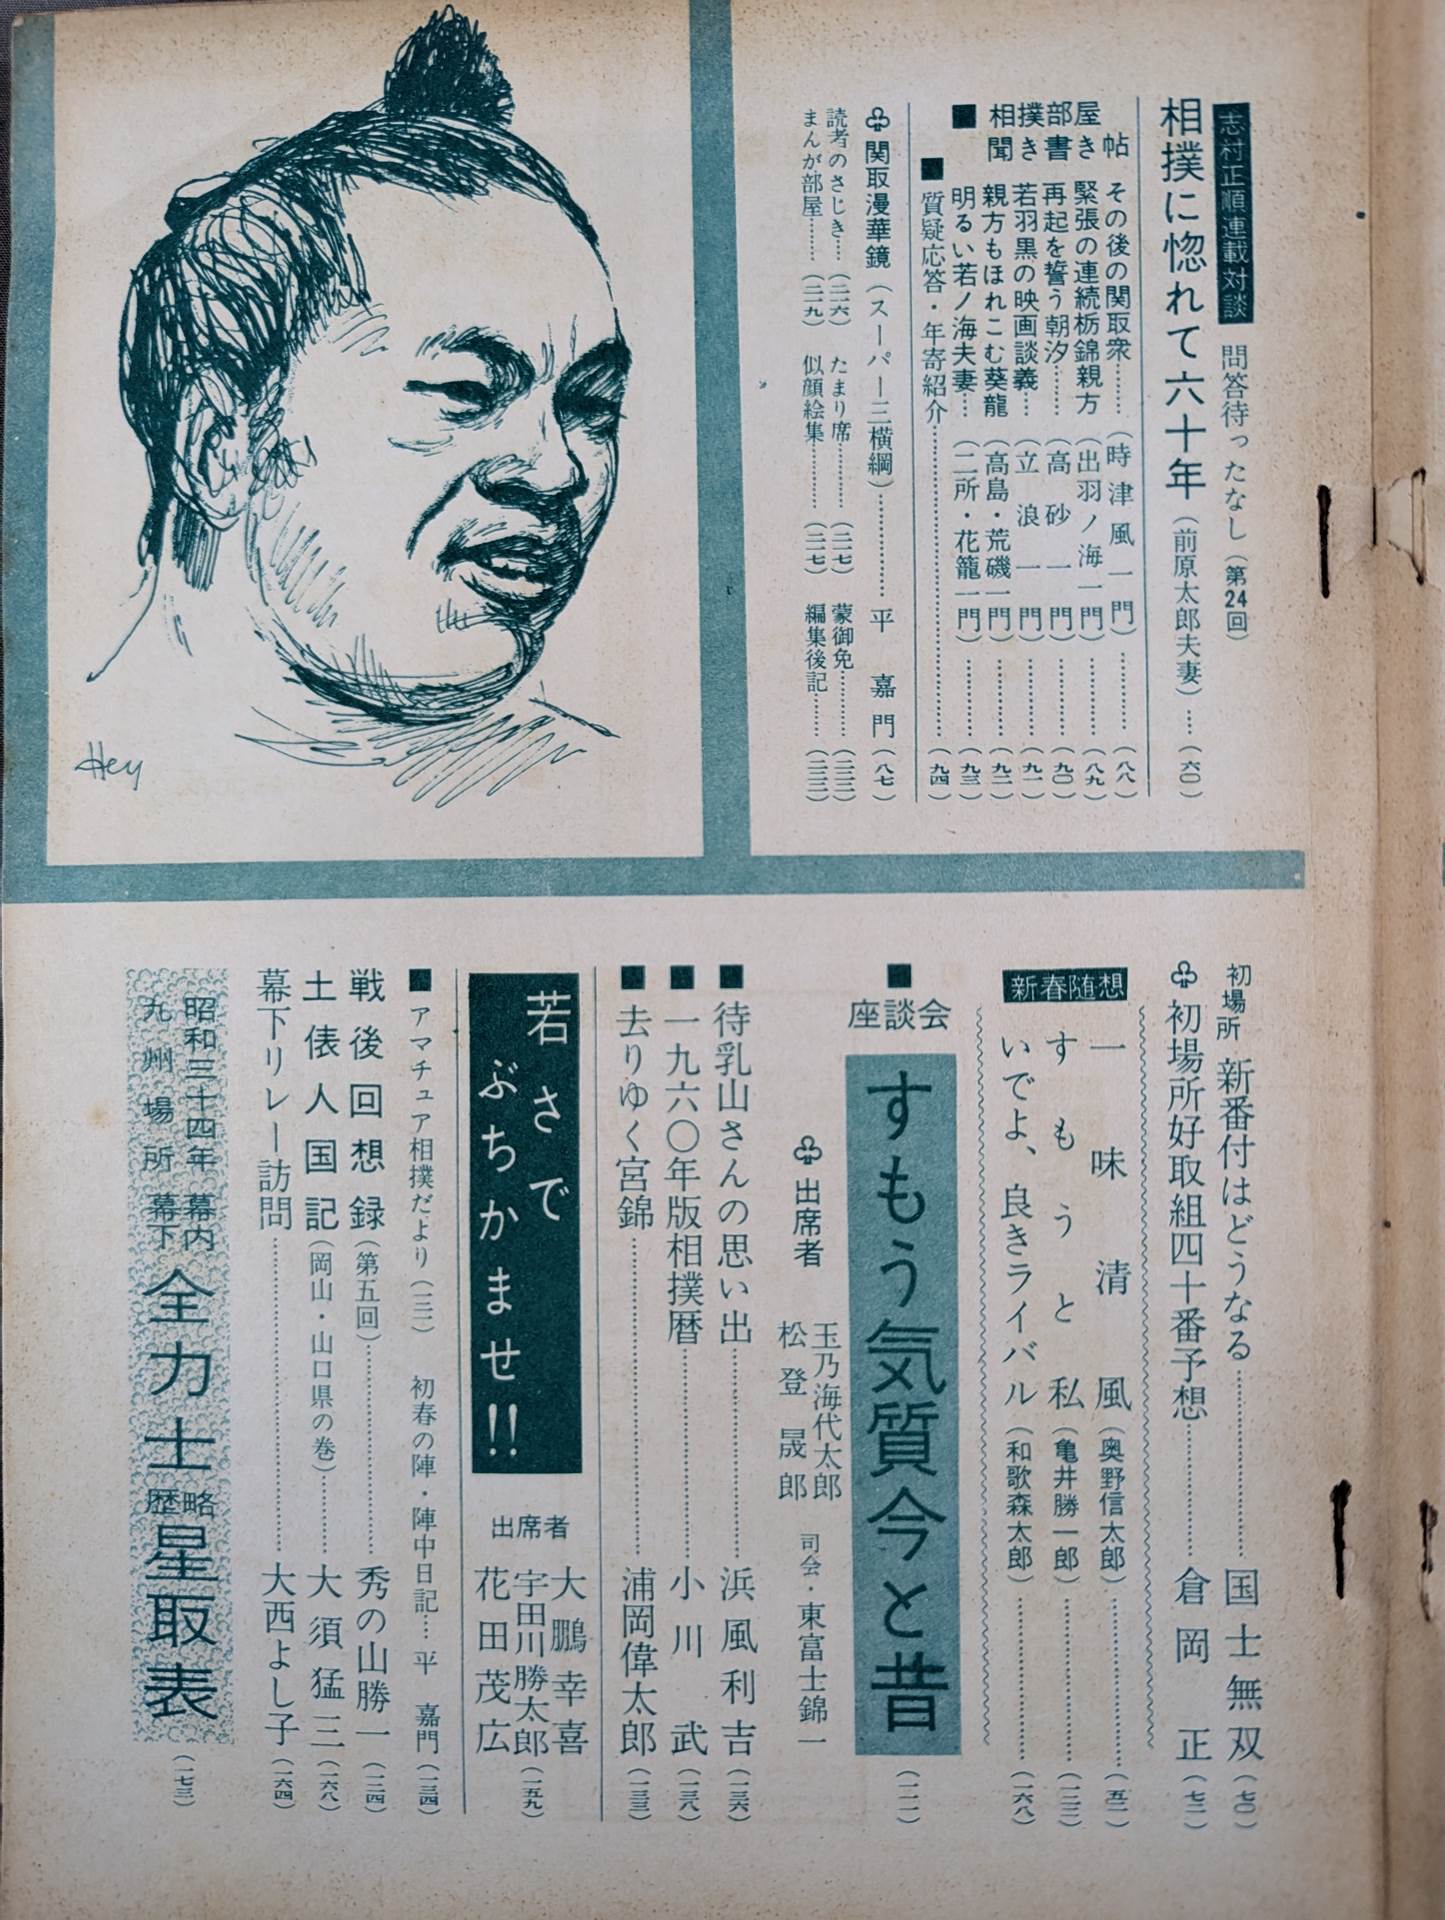 志村正順連載対談 問答待ったなし（第24回）
相撲に惚れて六十年（前原太郎夫妻）…（六〇）
相撲部屋聞き書き帖
その後の関取衆……（時津風一門）…………（八八）
緊張の連続栃錦親方（出羽ノ海一門）…………（八九）
再起を誓う朝汐……（高砂一門）…………（九〇）
若羽黒の映画談義…（立浪一門）…………（九一）
親方もほれこむ葵龍（高島・荒磯一門）…………（九二）
■明るい若ノ海夫妻…（二所・花籠一門）…………（九三）
■質疑応答・年寄紹介…………………（九四）
♧関取漫華鏡（スーパー三横綱）…………平嘉門（八七）
読者のさじき……（二二六） たまり席…………（二二七） 蒙御免…………（二三二）
まんが部屋……（二一九） 似顔絵集…………（二一七） 編集後記………（二三二）
Hey
初場所 新番付はどうなる…………………国士無双（七〇）
♧初場所好取組四十番予想…………………倉岡正（七二）
新春随想
一味清風（奥野信太郎）…………………（五二）
すもうと私（亀井勝一郎）…………………（一二二）
いでよ、良きライバル（和歌森太郎）…………………（一六八）
■座談会 すもう気質今と昔（一一一）
♧出席者 玉乃海代太郎
松登晟郎 司会・東富士錦一
■待乳山さんの思い出…………………浜風利吉（一三六）
■一九六〇年版相撲暦…………………小川武（一三八）
■去りゆく宮錦…………………浦岡偉太郎（一三三）
若さで
ぶちかませ!!
出席者 大鵬幸喜
宇田川勝太郎（一五九）
花田茂広
■アマチュア相撲だより（一三二） 初春の陣・陣中日記…平嘉門（一三四）
戦後回想録（第五回）…………………秀の山勝一（一二四）
土俵人国記（岡山・山口県の巻）…………大須猛三（一六八）
幕下リレー訪問…………………大西よし子（一六四）
昭和三十四年九州場所 幕内幕下 全力士略歴星取表（一七三）